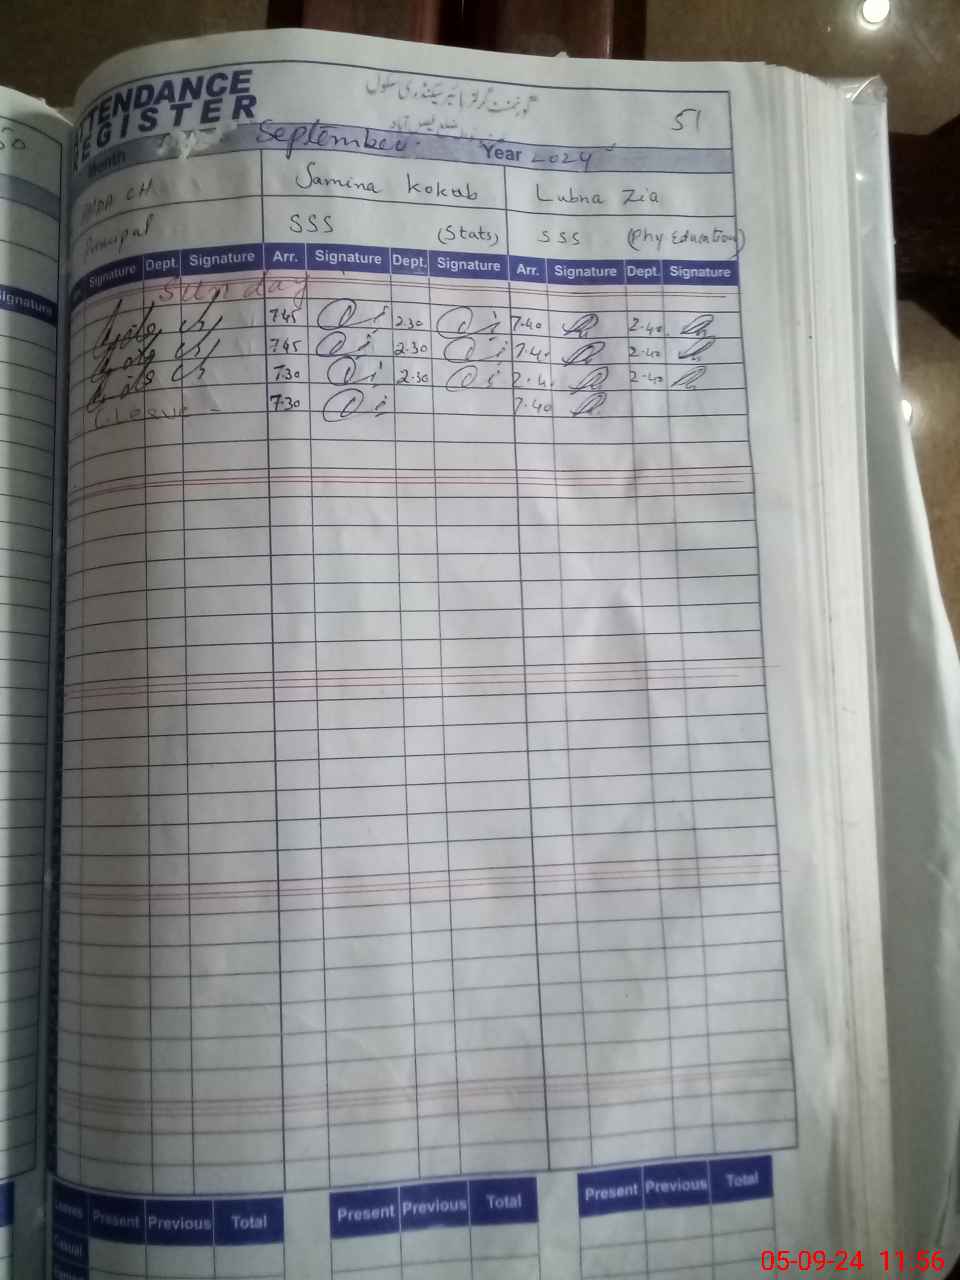 50
ATTENDANCE
REGISTER
گورنمنٹ گرلز ہائیر سیکنڈری سکول
51
Month September. Year 2024
CH. Samina Kokab Lubna Zia
Principal SSS (Stats) SSS (Phy. Education)
Signature Signature Dept. Signature Arr. Signature Dept. Signature Arr. Signature Dept. Signature
Sunday
7.45 2.30 7.40 2.40
7.45 2.30 7.40 2.40
7.30 2.30 2.40 2.40
C. Leave - 7.30 7.40
Leaves Present Previous Total Present Previous Total Present Previous Total
Casual
05-09-24 11:56